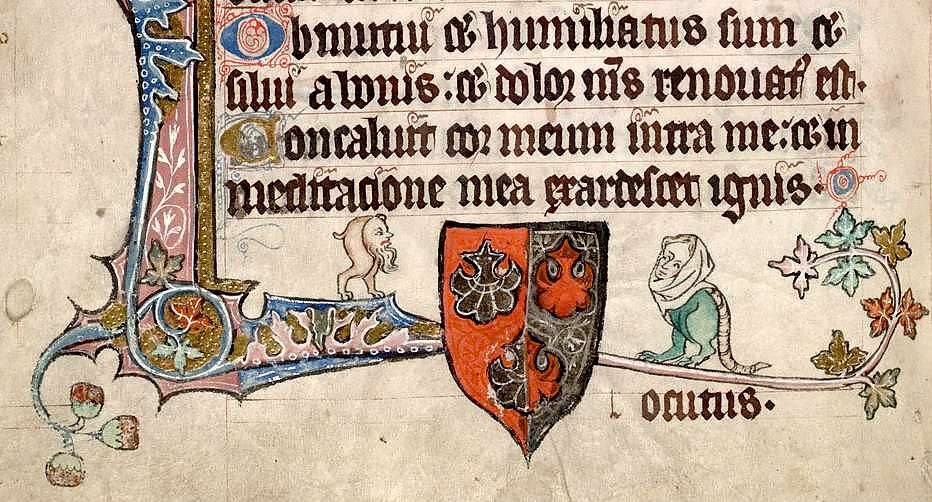 Obmutui et humiliatus sum et
silui a bonis: et dolor m̅s renouat̉ est.
Concaluit cor meum intra me: et in
meditacione mea exardescet ignis.
locutus.